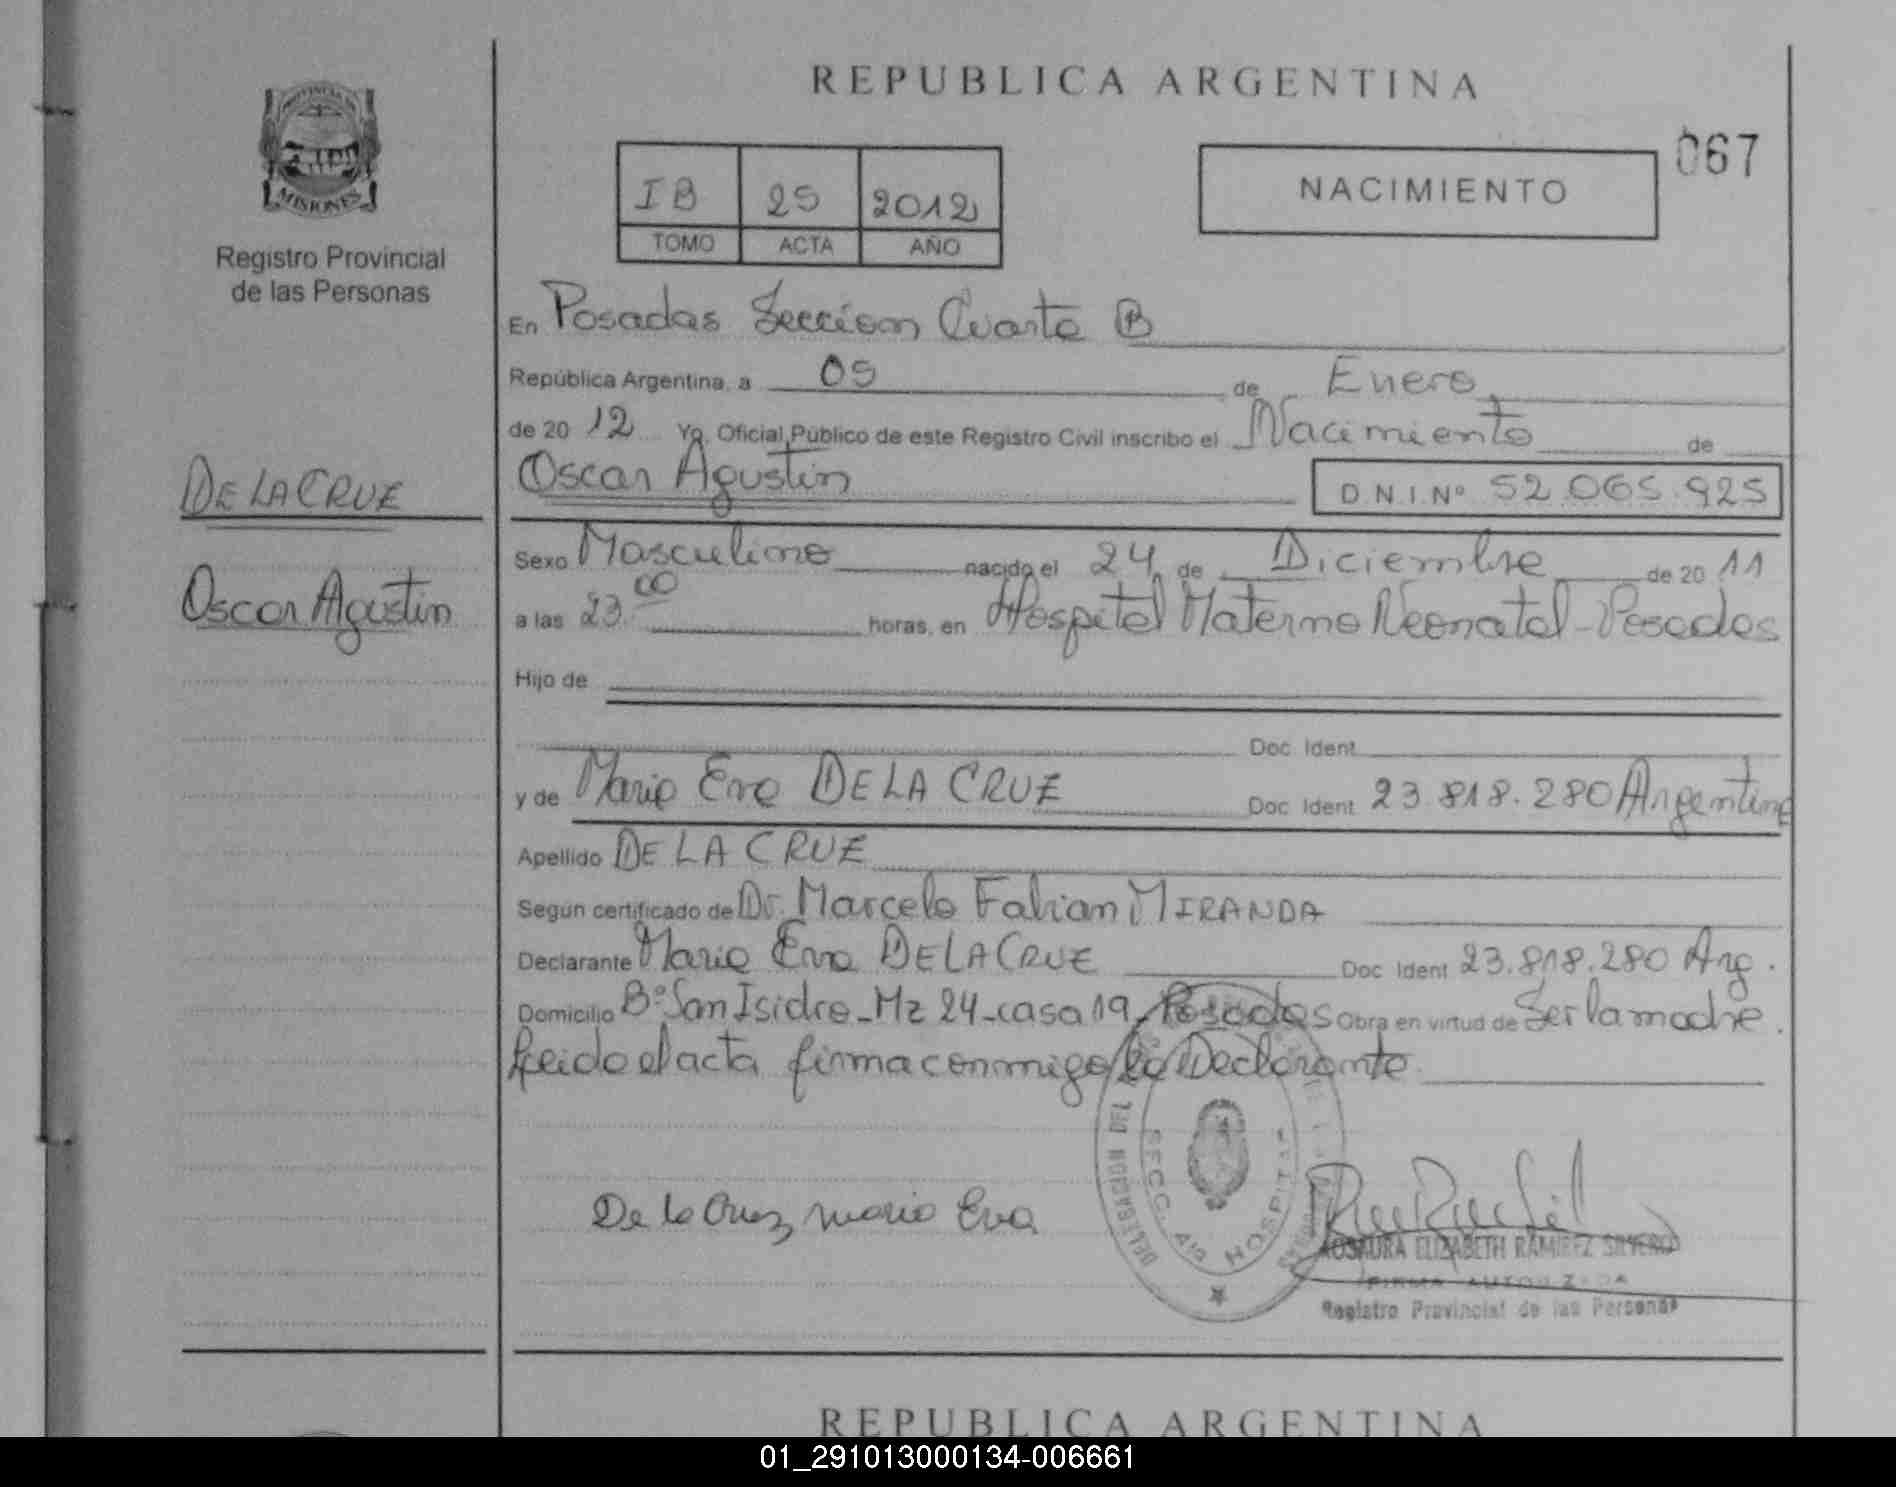 REPUBLICA ARGENTINA
067
PROVINCIA DE
MISIONES
Registro Provincial
de las Personas
IB 25 2012
TOMO ACTA AÑO
NACIMIENTO
En Posadas Seccion Cuarta B
República Argentina, a 05 de Enero
de 2012 Yo, Oficial Público de este Registro Civil inscribo el Nacimiento de
Oscar Agustin D.N.I.Nº 52.065.925
DE LA CRUZ
Oscar Agustin
Sexo Masculino nacido el 24 de Diciembre de 2011
a las 23.00 horas, en Hospital Materno Neonatal - Posadas
Hijo de
Doc. Ident.
y de Maria Eva DE LA CRUZ Doc. Ident. 23.818.280 Argentina
Apellido DE LA CRUZ
Según certificado de Dr. Marcelo Fabian MIRANDA
Declarante Maria Eva DE LA CRUZ Doc. Ident. 23.818.280 Arg.
Domicilio Bº San Isidro - Mz 24 - casa 19 - Posadas Obra en virtud de Ser la madre.
Leido el acta firma conmigo la Declarante.
De la Cruz, maria Eva
DELEGACION DEL
SECC. 4B HOSPITAL
ROSAURA ELIZABETH RAMIREZ SILVERO
FIRMA AUTORIZADA
Registro Provincial de las Personas
REPUBLICA ARGENTINA
01_291013000134-006661